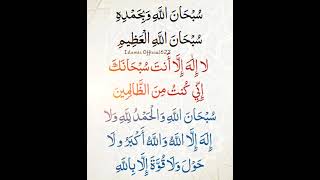 سُبْحَانَ اللَّهِ وَبِحَمْدِهِ
سُبْحَانَ اللَّهِ الْعَظِيمِ
لا إِلٰهَ إِلَّا أَنتَ سُبْحَانَكَ
إِنِّي كُنتُ مِنَ الظَّالِمِينَ
سُبْحَانَ اللَّهِ وَالْحَمْدُ لِلَّهِ وَلَا
إِلَهَ إِلَّا اللَّهُ وَاللَّهُ أَكْبَرُ وَلَا
حَوْلَ وَلَا قُوَّةَ إِلَّا بِاللَّهِ